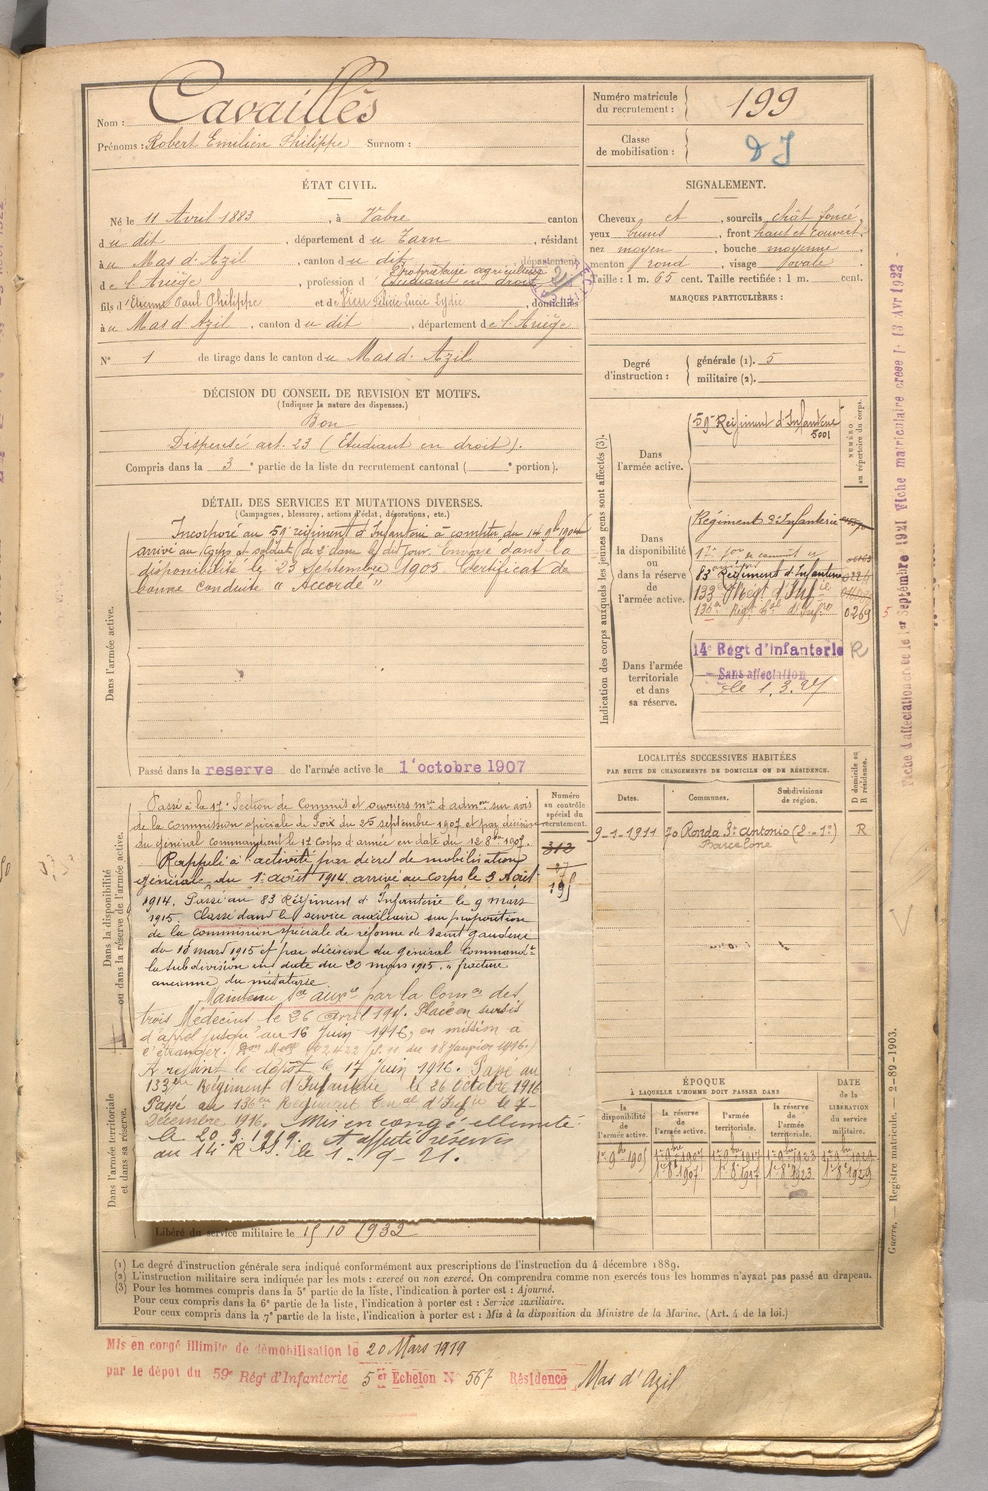 Nom : Cavaillès
Prénoms : Robert Emilien Philippe Surnom :
Numéro matricule du recrutement : 199
Classe de mobilisation :
ÉTAT CIVIL.
Né le 11 Avril 1883, à Vabre canton
du dit, département du Tarn, résidant
à u Mas d'Azil, canton du dit, département
de l'Ariège, profession d Etudiant en droit
Propriétaire agriculteur
fils d'Etienne Paul Philippe et de Lucie Lydie, domiciliés
à u Mas d'Azil, canton du dit, département de l'Ariège
N° 1 de tirage dans le canton du Mas d'Azil
SIGNALEMENT.
Cheveux ct, sourcils chât foncé,
yeux bruns, front haut et couvert,
nez moyen, bouche moyenne
menton rond, visage ovale
Taille : 1 m. 65 cent. Taille rectifiée : 1 m. cent.
MARQUES PARTICULIÈRES :
Degré d'instruction : générale (1). 5
militaire (2).
DÉCISION DU CONSEIL DE REVISION ET MOTIFS.
(Indiquer la nature des dispenses.)
Bon
Dispensé art. 23 (Etudiant en droit).
Compris dans la 3e partie de la liste du recrutement cantonal ( e portion).
DÉTAIL DES SERVICES ET MUTATIONS DIVERSES.
(Campagnes, blessures, actions d'éclat, décorations, etc.)
Dans l'armée active.
Incorporé au 59e régiment d'Infanterie à compter du 14 9bre 1904
arrivé au Corps et soldat de 2e classe le dit jour. Envoyé dans la
disponibilité le 23 Septembre 1905. Certificat de
bonne conduite "Accordé"
Passé dans la reserve de l'armée active le 1er octobre 1907
Indication des corps auxquels les jeunes gens sont affectés (3).
NUMÉRO au répertoire du corps.
Dans l'armée active.
59e Régiment d'Infanterie
5001
Dans la disponibilité ou dans la réserve de l'armée active.
Régiment d'Infanterie
83e Régiment d'Infanterie
133e Régt d'Infie
136e Régt d'Infie 0269
Dans l'armée territoriale et dans sa réserve.
14e Régt d'Infanterie R
Sans affectation
le 1.3.27
LOCALITÉS SUCCESSIVES HABITÉES
PAR SUITE DE CHANGEMENTS DE DOMICILE OU DE RÉSIDENCE.
Dates. Communes. Subdivisions de région. D domicile ou R résidence.
9-1-1911 70 Ronda St Antonio (2.-1a) R
Barcelone
Dans la disponibilité ou dans la réserve de l'armée active.
Numéro au contrôle spécial du recrutement.
Passé à la 17e Section de Commis et ouvriers mres d'admon sur avis
de la Commission spéciale de Foix du 25 septembre 1907 et par décision
du général Commandant le 17 Corps d'armée en date du 12 8bre 1907.
Rappelé à l'activité par décret de mobilisation
générale du 1er août 1914. arrivé au Corps le 3 Août
1914. Passé au 83 Régiment d'Infanterie le 9 mars
1915. Classé dans le service auxiliaire sur proposition
de la Commission spéciale de réforme de Saint Gaudens
du 18 mars 1915 et par décision du Général Commandt
la subdivision en date du 20 mars 1915. « fracture
ancienne du métatarse
Maintenu Sce auxre par la Comon des
trois Médecins le 26 Avril 1915. Placé en sursis
d'appel jusqu'au 16 Juin 1916, en mission à
l'étranger.
A rejoint le dépôt le 17 Juin 1916. Passé au
133me Régiment d'Infanterie le 26 Octobre 1916
Passé au 136me Régiment d'Infie le 7
Décembre 1916. Mis en congé illimité
le 20.3.1919. Affecté réserves
au 14e R.I. le 1-9-21.
Dans l'armée territoriale et dans sa réserve.
Libéré du service militaire le 15 10 1932
ÉPOQUE
À LAQUELLE L'HOMME DOIT PASSER DANS
la disponibilité de l'armée active. la réserve de l'armée active. l'armée territoriale. la réserve de l'armée territoriale. DATE de la LIBÉRATION du service militaire.
1er 8bre 1907 1er 8bre 1917 1er 8bre 1923 1er 8bre 1929
(1) Le degré d'instruction générale sera indiqué conformément aux prescriptions de l'instruction du 4 décembre 1889.
(2) L'instruction militaire sera indiquée par les mots : exercé ou non exercé. On comprendra comme non exercés tous les hommes n'ayant pas passé au drapeau.
(3) Pour les hommes compris dans la 5e partie de la liste, l'indication à porter est : Ajourné.
Pour ceux compris dans la 6e partie de la liste, l'indication à porter est : Service auxiliaire.
Pour ceux compris dans la 7e partie de la liste, l'indication à porter est : Mis à la disposition du Ministre de la Marine. (Art. 4 de la loi.)
Guerre. — Registre matricule. — 2-89-1903.
Mis en congé illimité de démobilisation le 20 Mars 1919
par le dépôt du 59e Régt d'Infanterie 5 er Echelon N° 567 Résidence Mas d'Azil